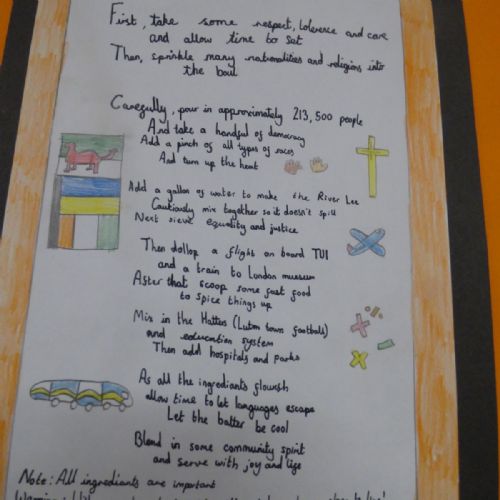 First, take some respect, tolerence and care
and allow time to set
Then, sprinkle many nationalities and religions into
the bowl
Carefully, pour in approximately 213,500 people
And take a handful of democracy
Add a pinch of all types of races
And turn up the heat
Add a gallon of water to make the River Lee
Cautiously mix together so it doesn't spill
Next sieve equality and justice
Then dollop a flight on board TUI
and a train to London museum
After that scoop some fast food
to spice things up
Mix in the Hatters (Luton town football)
and education system
Then add hospitals and parks
As all the ingredients flourish
allow time to let languages escape
Let the batter be cool
Blend in some community spirit
and serve with joy and life
Note: All ingredients are important